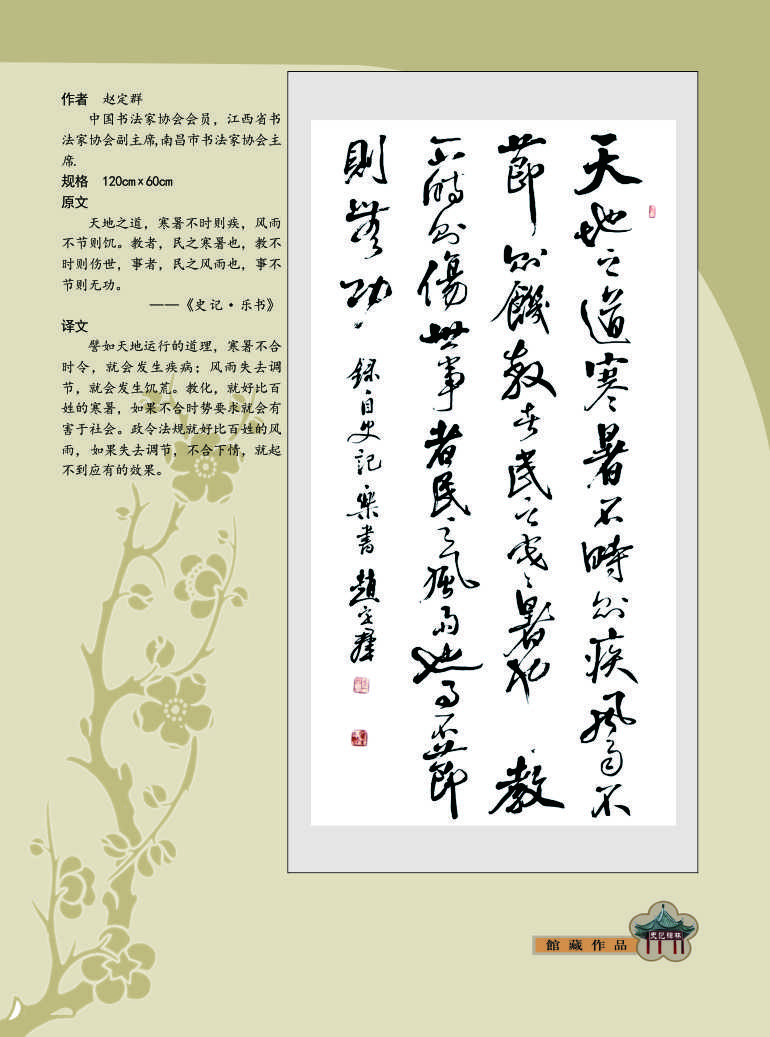 作者 赵定群
中国书法家协会会员，江西省书
法家协会副主席,南昌市书法家协会主
席.
规格 120cm×60cm
原文
天地之道，寒暑不时则疾，风雨
不节则饥。教者，民之寒暑也，教不
时则伤世，事者，民之风雨也，事不
节则无功。
——《史记·乐书》
译文
譬如天地运行的道理，寒暑不合
时令，就会发生疾病；风雨失去调
节，就会发生饥荒。教化，就好比百
姓的寒暑，如果不合时势要求就会有
害于社会。政令法规就好比百姓的风
雨，如果失去调节，不合下情，就起
不到应有的效果。
天地之道寒暑不時則疾風雨不
節則饑教者民之寒暑也教
不時則傷世事者民之風雨也事不節
則無功 録自史記樂書 趙定群
館藏作品
史記碑林